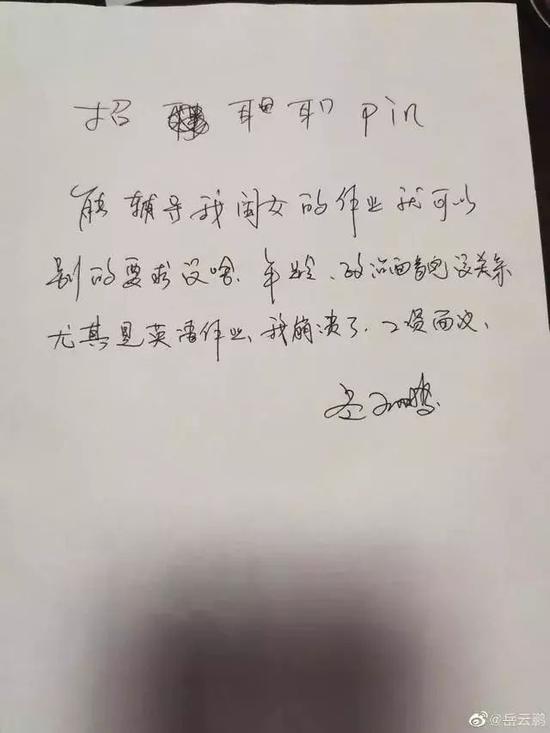 招 职 pin
能辅导我闺女的作业就可以
别的要求没啥.年龄、政治面貌没关系
尤其是英语作业、我崩溃了.工资面议、
岳云鹏.
@岳云鹏